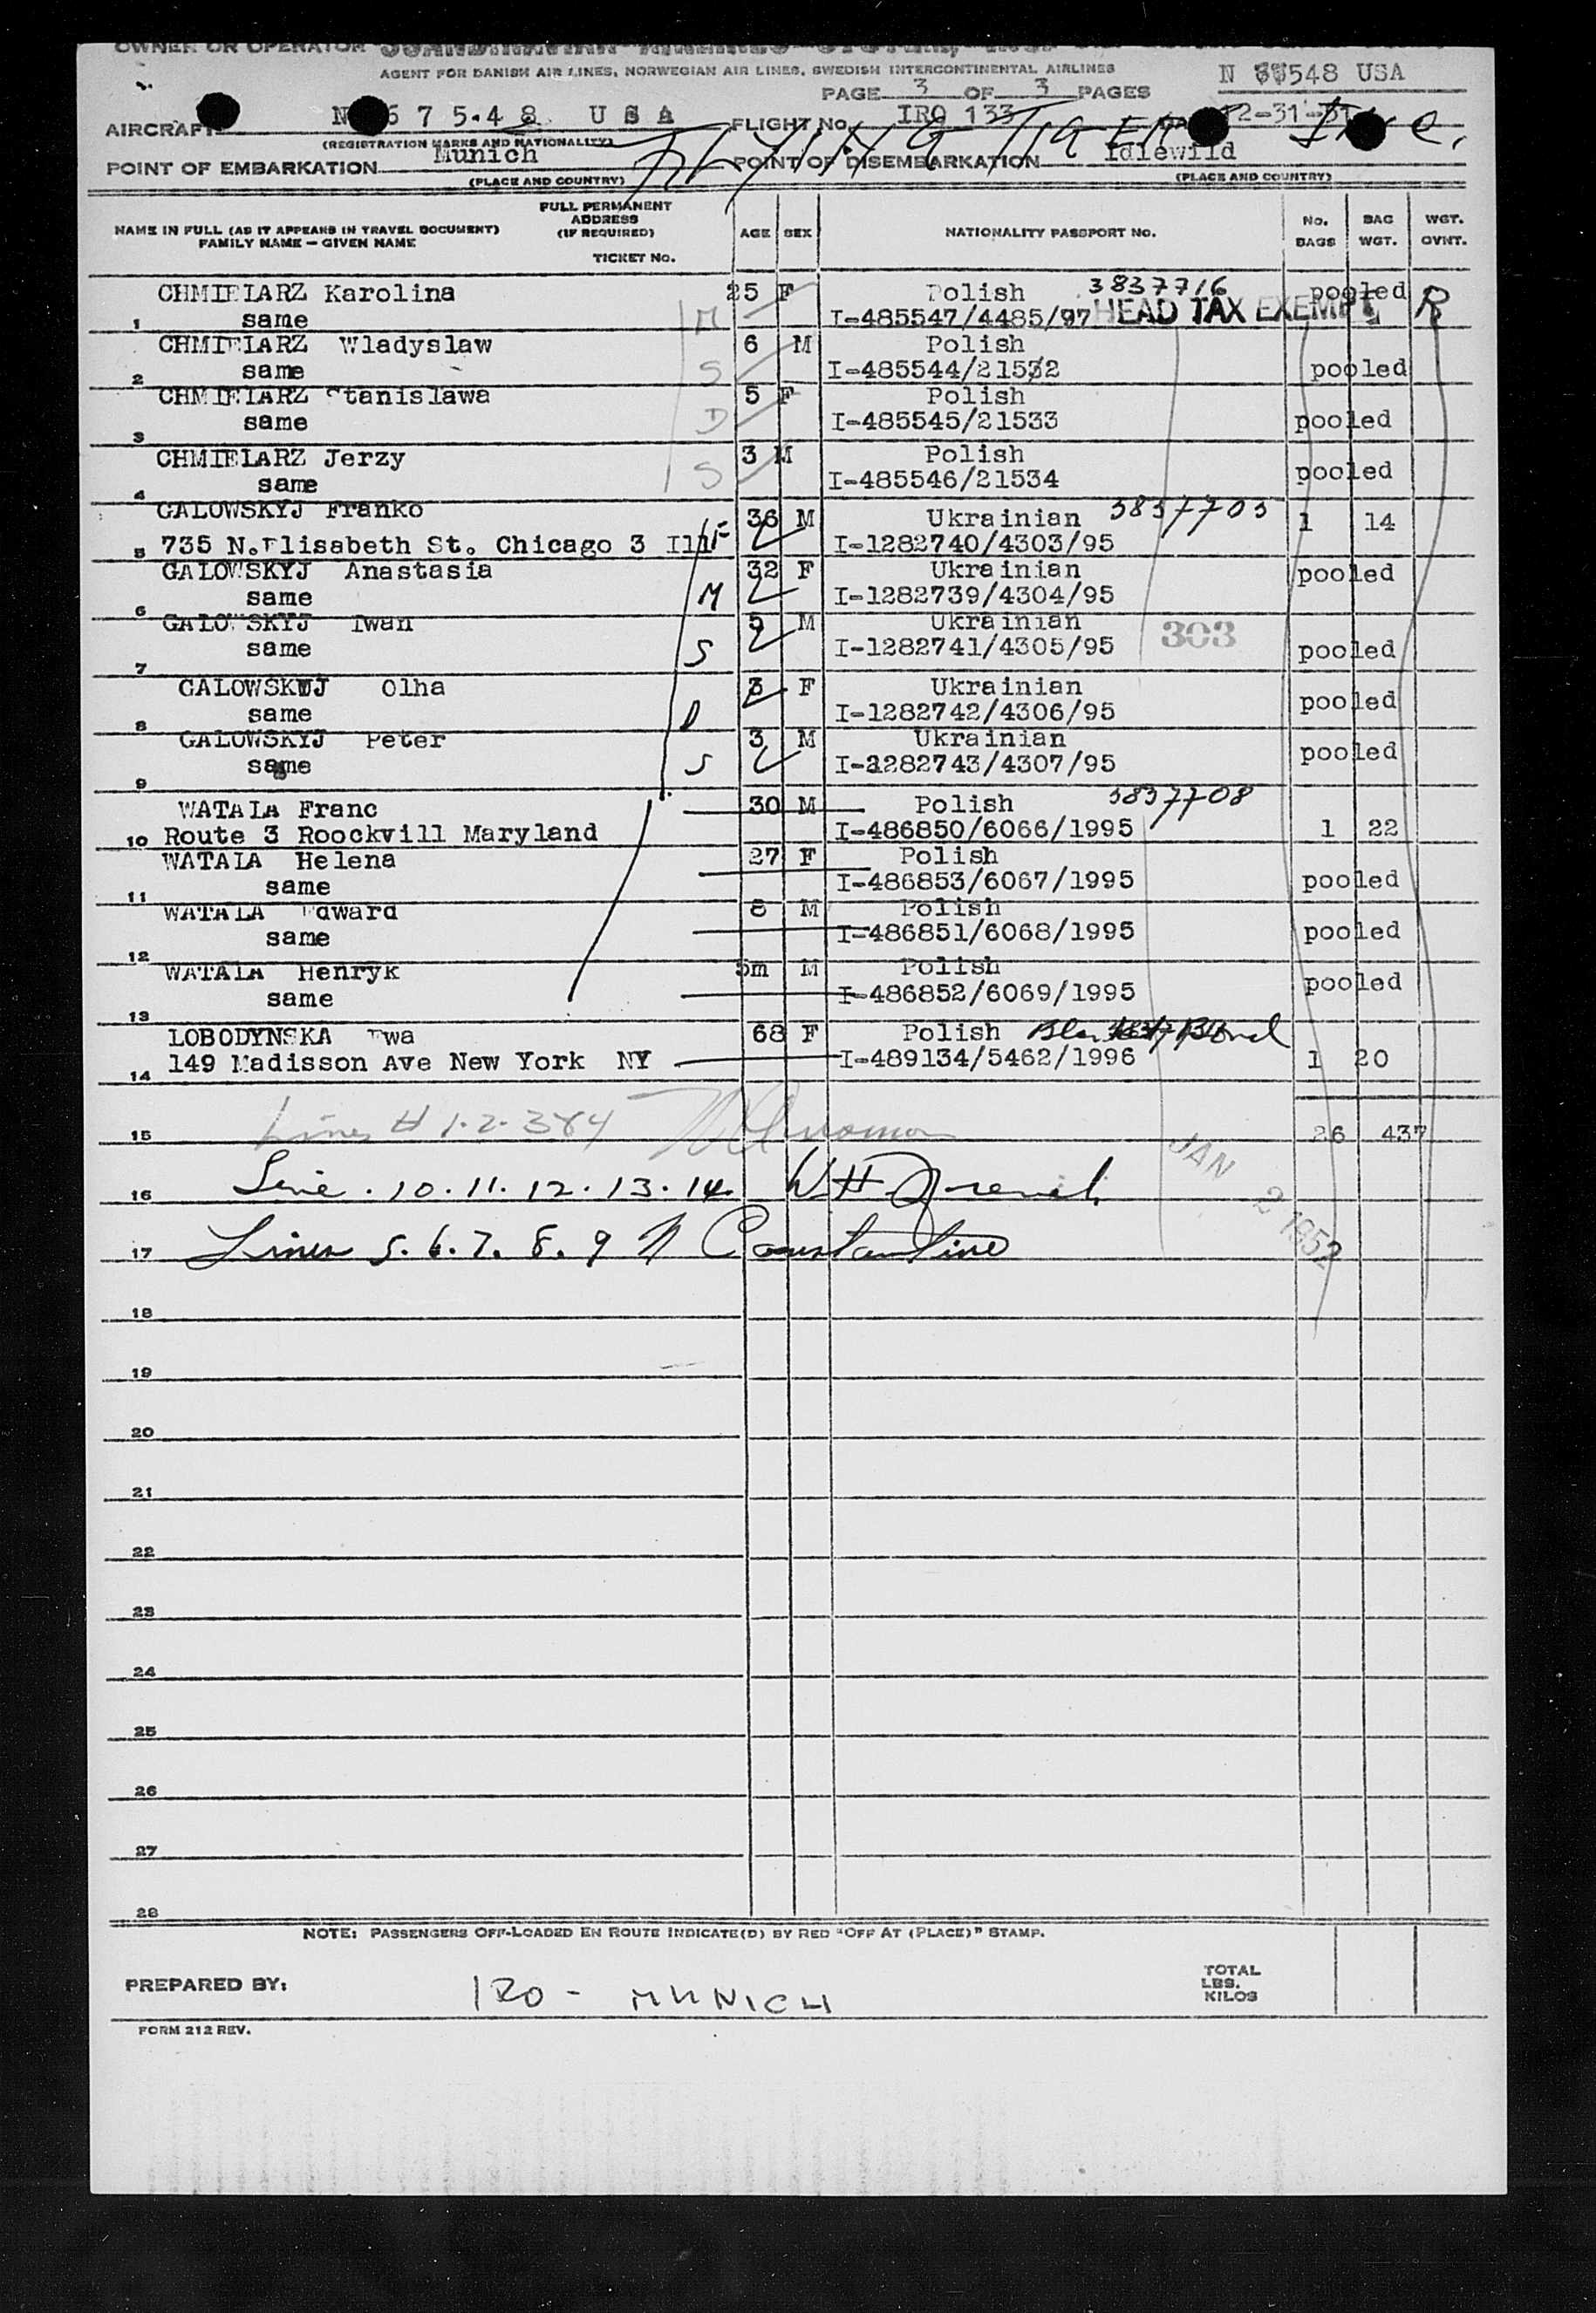 OWNER OR OPERATOR
AGENT FOR DANISH AIR LINES, NORWEGIAN AIR LINES, SWEDISH INTERCONTINENTAL AIRLINES
N 548 USA
PAGE 3 OF 3 PAGES
AIRCRAFT N 6 7 5 4 8 U S A FLIGHT No. IRO 133 12-31-51
FLYING TIGER Inc.
(REGISTRATION MARKS AND NATIONALITY)
POINT OF EMBARKATION Munich POINT OF DISEMBARKATION Idlewild
(PLACE AND COUNTRY) (PLACE AND COUNTRY)
NAME IN FULL (AS IT APPEARS IN TRAVEL DOCUMENT) FAMILY NAME — GIVEN NAME FULL PERMANENT ADDRESS (IF REQUIRED) TICKET No. AGE SEX NATIONALITY PASSPORT NO. No. BAGS BAG WGT. WGT. OVNT.
CHMIELARZ Karolina 25 F Polish 3837716 pooled R
1 same M I-485547/4485/97 HEAD TAX EXEMPT
CHMIELARZ Wladyslaw 6 M Polish
2 same S I-485544/21532 pooled
CHMIELARZ Stanislawa 5 F Polish
3 same D I-485545/21533 pooled
CHMIELARZ Jerzy 3 M Polish
4 same S I-485546/21534 pooled
GALOWSKYJ Franko 36 M Ukrainian 3837703 1 14
5 735 N.Elisabeth St. Chicago 3 Ill F I-1282740/4303/95
GALOWSKYJ Anastasia 32 F Ukrainian pooled
6 same M I-1282739/4304/95
GALOWSKYJ Iwan 5 M Ukrainian 303
7 same S I-1282741/4305/95 pooled
GALOWSKYJ Olha 3 F Ukrainian
8 same D I-1282742/4306/95 pooled
GALOWSKYJ Peter 3 M Ukrainian
9 same S I-1282743/4307/95 pooled
WATALA Franc 30 M Polish 3837708
10 Route 3 Roockvill Maryland I-486850/6066/1995 1 22
WATALA Helena 27 F Polish
11 same I-486853/6067/1995 pooled
WATALA Edward 8 M Polish
12 same I-486851/6068/1995 pooled
WATALA Henryk 5m M Polish
13 same I-486852/6069/1995 pooled
LOBODYNSKA Ewa 68 F Polish
14 149 Madisson Ave New York NY I-489134/5462/1996 1 20
15 Lines # 1.2.3&4 26 437
JAN 2 1952
16 Line . 10. 11. 12. 13. 14. WH French
17 Lines 5. 6. 7. 8. 9 N Constantine
18
19
20
21
22
23
24
25
26
27
28
NOTE: PASSENGERS OFF-LOADED EN ROUTE INDICATE(D) BY RED "OFF AT (PLACE)" STAMP.
PREPARED BY: IRO - MUNICH TOTAL LBS. KILOS
FORM 212 REV.